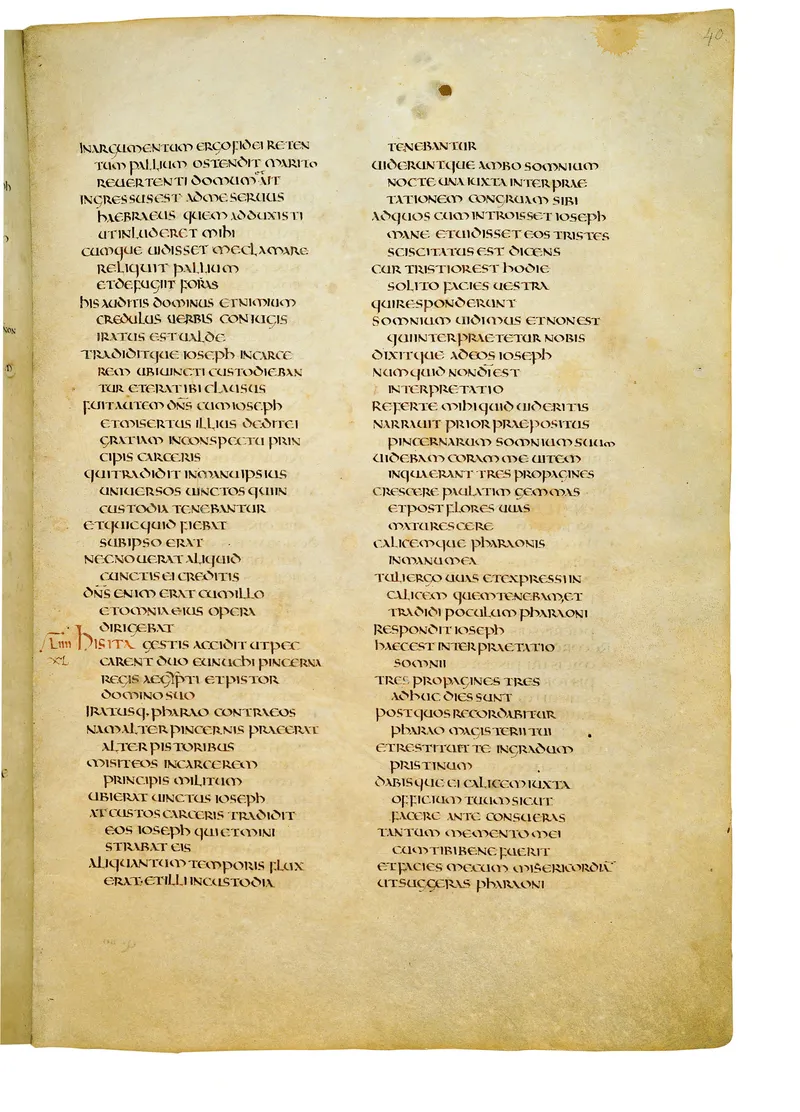 40
INARGUMENTUM ERGO FIDEI RETEN
TUM PALLIUM OSTENDIT MARITO
REUERTENTI DOMUM ET AIT
INGRESSUS EST ADME SERUUS
HAEBRAEUS QUEM ADDUXISTI
UT INLUDERET MIHI
CUMQUE UIDISSET ME CLAMARE
RELIQUIT PALLIUM
ET DEFUGIIT FORAS
HIS AUDITIS DOMINUS ET NIMIUM
CREDULUS UERBIS CONIUGIS
IRATUS EST UALDE
TRADIDITQUE IOSEPH IN CARCE
REM UBI UINCTI CUSTODIEBAN
TUR ET ERAT IBI CLAUSUS
FUIT AUTEM DN̅S CUM IOSEPH
ET MISERTUS ILLIUS DEDIT EI
GRATIAM IN CONSPECTU PRIN
CIPIS CARCERIS
QUI TRADIDIT IN MANU IPSIUS
UNIUERSOS UINCTOS QUI IN
CUSTODIA TENEBANTUR
ET QUICQUID FIEBAT
SUB IPSO ERAT
NEC NOUERAT ALIQUID
CUNCTIS EI CREDITIS
DN̅S ENIM ERAT CUM ILLO
ET OMNIA EIUS OPERA
DIRIGEBAT
HIS ITA GESTIS ACCIDIT UT PEC
XL CARENT DUO EUNUCHI PINCERNA
REGIS AEGYPTI ET PISTOR
DOMINO SUO
IRATUSQ. PHARAO CONTRA EOS
NAM ALTER PINCERNIS PRAEERAT
ALTER PISTORIBUS
MISIT EOS IN CARCEREM
PRINCIPIS MILITUM
UBI ERAT UINCTUS IOSEPH
AT CUSTOS CARCERIS TRADIDIT
EOS IOSEPH QUI ET MINI
STRABAT EIS
ALIQUANTUM TEMPORIS FLUX
ERAT· ET ILLI IN CUSTODIA
TENEBANTUR
UIDERUNTQUE AMBO SOMNIUM
NOCTE UNA IUXTA INTERPRAE
TATIONEM CONGRUAM SIBI
AD QUOS CUM INTROISSET IOSEPH
MANE ET UIDISSET EOS TRISTES
SCISCITATUS EST DICENS
CUR TRISTIOR EST HODIE
SOLITO FACIES UESTRA
QUI RESPONDERUNT
SOMNIUM UIDIMUS ET NON EST
QUI INTERPRAETETUR NOBIS
DIXITQUE AD EOS IOSEPH
NUMQUID NON DI̅ EST
INTERPRETATIO
REFERTE MIHI QUID UIDERITIS
NARRAUIT PRIOR PRAEPOSITUS
PINCERNARUM SOMNIUM SUUM
UIDEBAM CORAM ME UITEM
IN QUA ERANT TRES PROPAGINES
CRESCERE PAULATIM GEMMAS
ET POST FLORES UUAS
MATURESCERE
CALICEMQUE PHARAONIS
IN MANU MEA
TULI ERGO UUAS ET EXPRESSI IN
CALICEM QUEM TENEBAM, ET
TRADIDI POCULUM PHARAONI
RESPONDIT IOSEPH
HAEC EST INTERPRAETATIO
SOMNII
TRES PROPAGINES TRES
ADHUC DIES SUNT
POST QUOS RECORDABITUR
PHARAO MAGISTERII TUI
ET RESTITUET TE IN GRADUM
PRISTINUM
DABISQUE EI CALICEM IUXTA
OFFICIUM TUUM SICUT
FACERE ANTE CONSUERAS
TANTUM MEMENTO MEI
CUM TIBI BENE FUERIT
ET FACIES MECUM MISERICORDIĀ
UT SUGGERAS PHARAONI